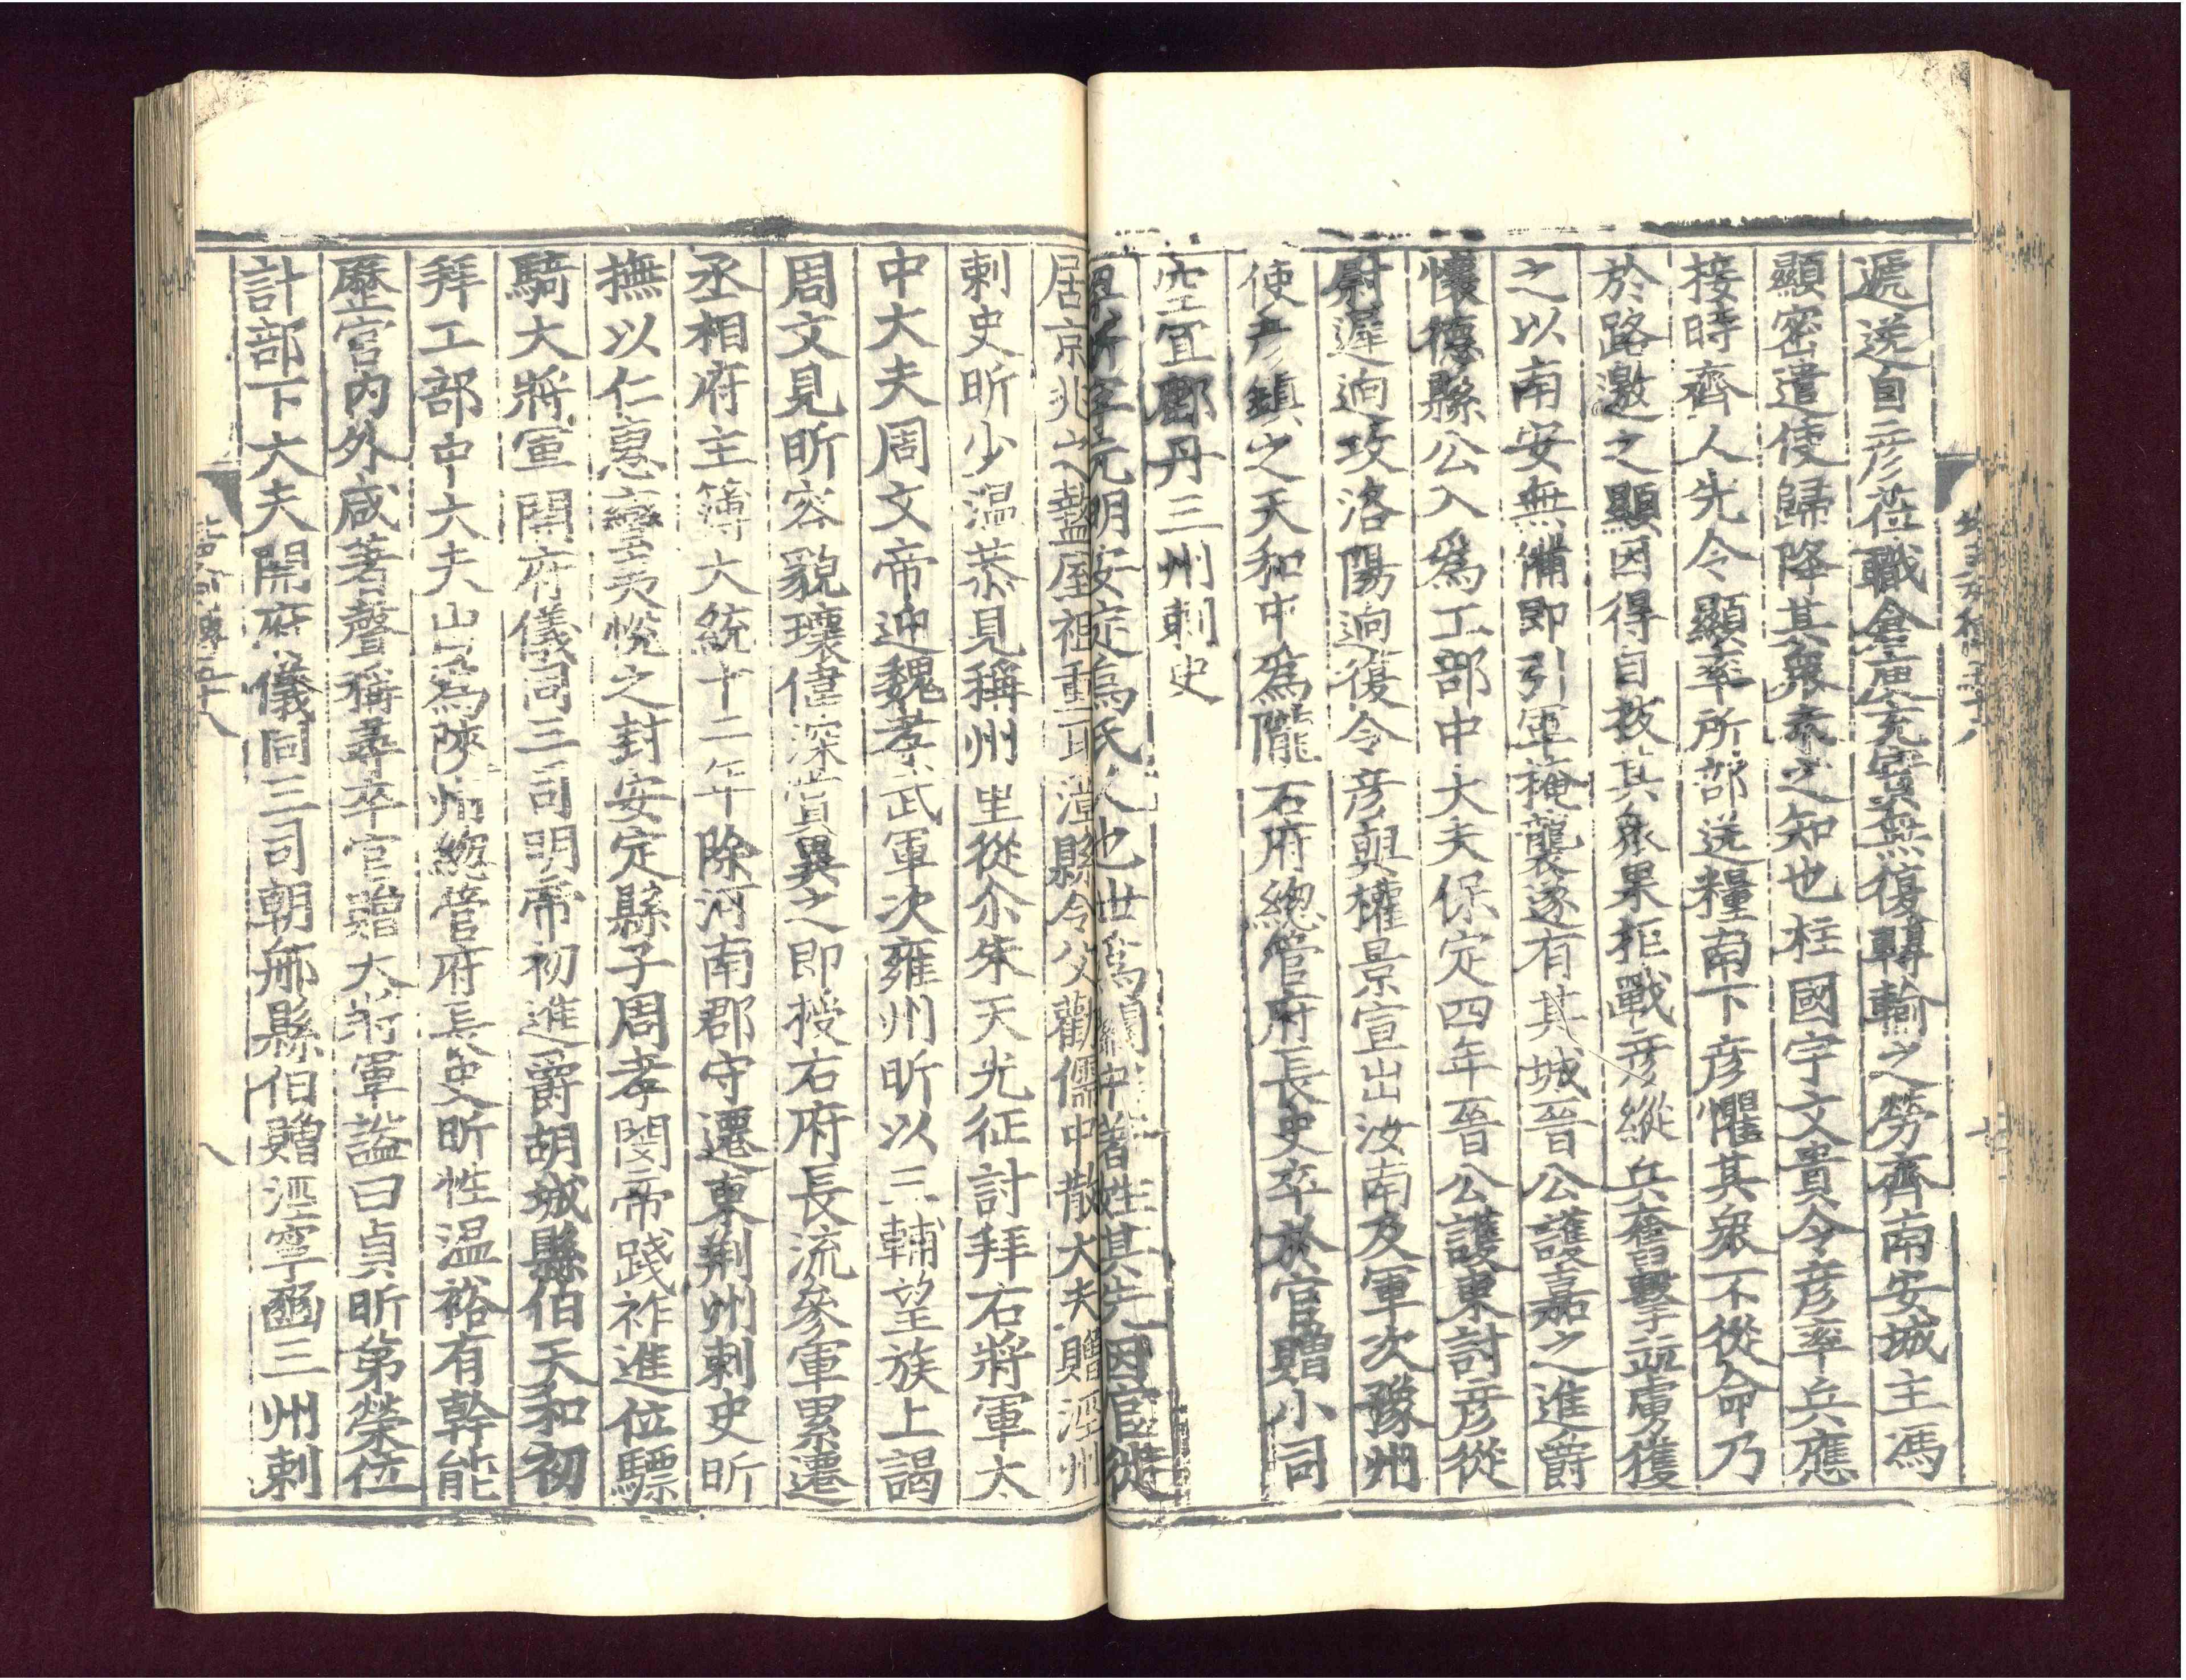 遞送自彦莅職倉庫充實無復轉輸之勞齊南安城主馮
顯密遣使歸降其衆未之知也柱國宇文貴令彦率兵應
接時齊人先令顯率所部送糧南下彦懼其衆不從命乃
於路邀之顯因得自拔其衆果拒戰彦縱兵奮擊並虜獲
之以南安無備即引軍掩襲遂有其城晉公護嘉之進爵
懷德縣公入爲工部中大夫保定四年晉公護東討彦從
尉遲逈攻洛陽逈復令彦與權景宣出汝南及軍次豫州
使彦鎮之天和中爲隴右府總管府長史卒於官贈小司
空宜鄜丹三州刺史
昕字元明安定烏氏人也世爲關中著姓其先因官從
居京兆之盩厔祖重耳漳縣令父勸儒中散大夫贈涇州
刺史昕少溫恭見稱州里從尒朱天光征討拜右將軍太
中大夫周文帝迎魏孝武軍次雍州昕以三輔望族上謁
周文見昕容貌瓌偉深賞異之即授右府長流參軍累遷
丞相府主簿大統十二年除河南郡守遷東荆州刺史昕
撫以仁惠蠻夷悅之封安定縣子周孝閔帝踐祚進位驃
騎大將軍開府儀同三司明帝初進爵胡城縣伯天和初
拜工部中大夫出爲陝州總管府長史昕性溫裕有幹能
歷官內外咸著聲稱尋卒官贈大將軍諡曰貞昕弟榮位
計部下大夫開府儀同三司朝那縣伯贈涇寧豳三州刺
傳五十八
八